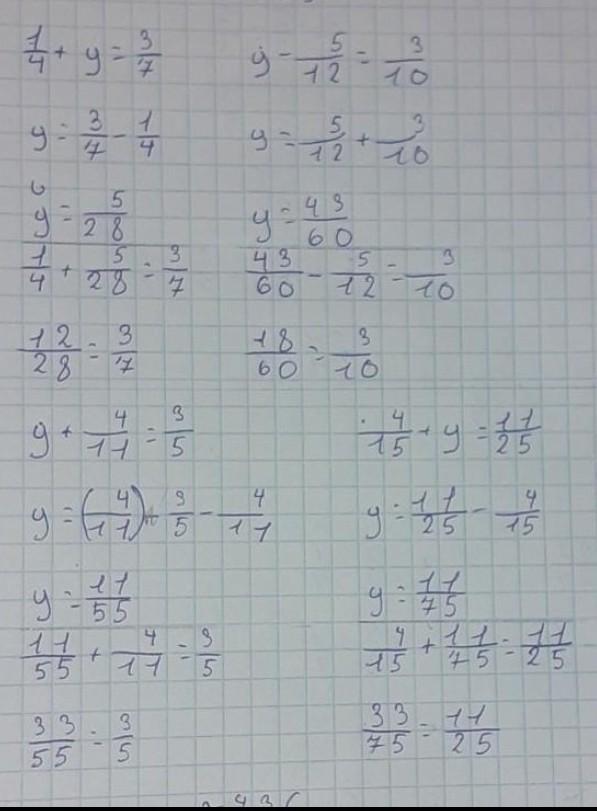 1/4 + y = 3/7
y = 3/7 - 1/4
y = 5/28
1/4 + 5/28 = 3/7
12/28 = 3/7
y - 5/12 = 3/10
y = 5/12 + 3/10
y = 43/60
43/60 - 5/12 = 3/10
18/60 = 3/10
y + 4/11 = 3/5
y = (4/11) 3/5 - 4/11
y = 11/55
11/55 + 4/11 = 3/5
33/55 = 3/5
4/15 + y = 11/25
y = 11/25 - 4/15
y = 11/75
4/15 + 11/75 = 11/25
33/75 = 11/25